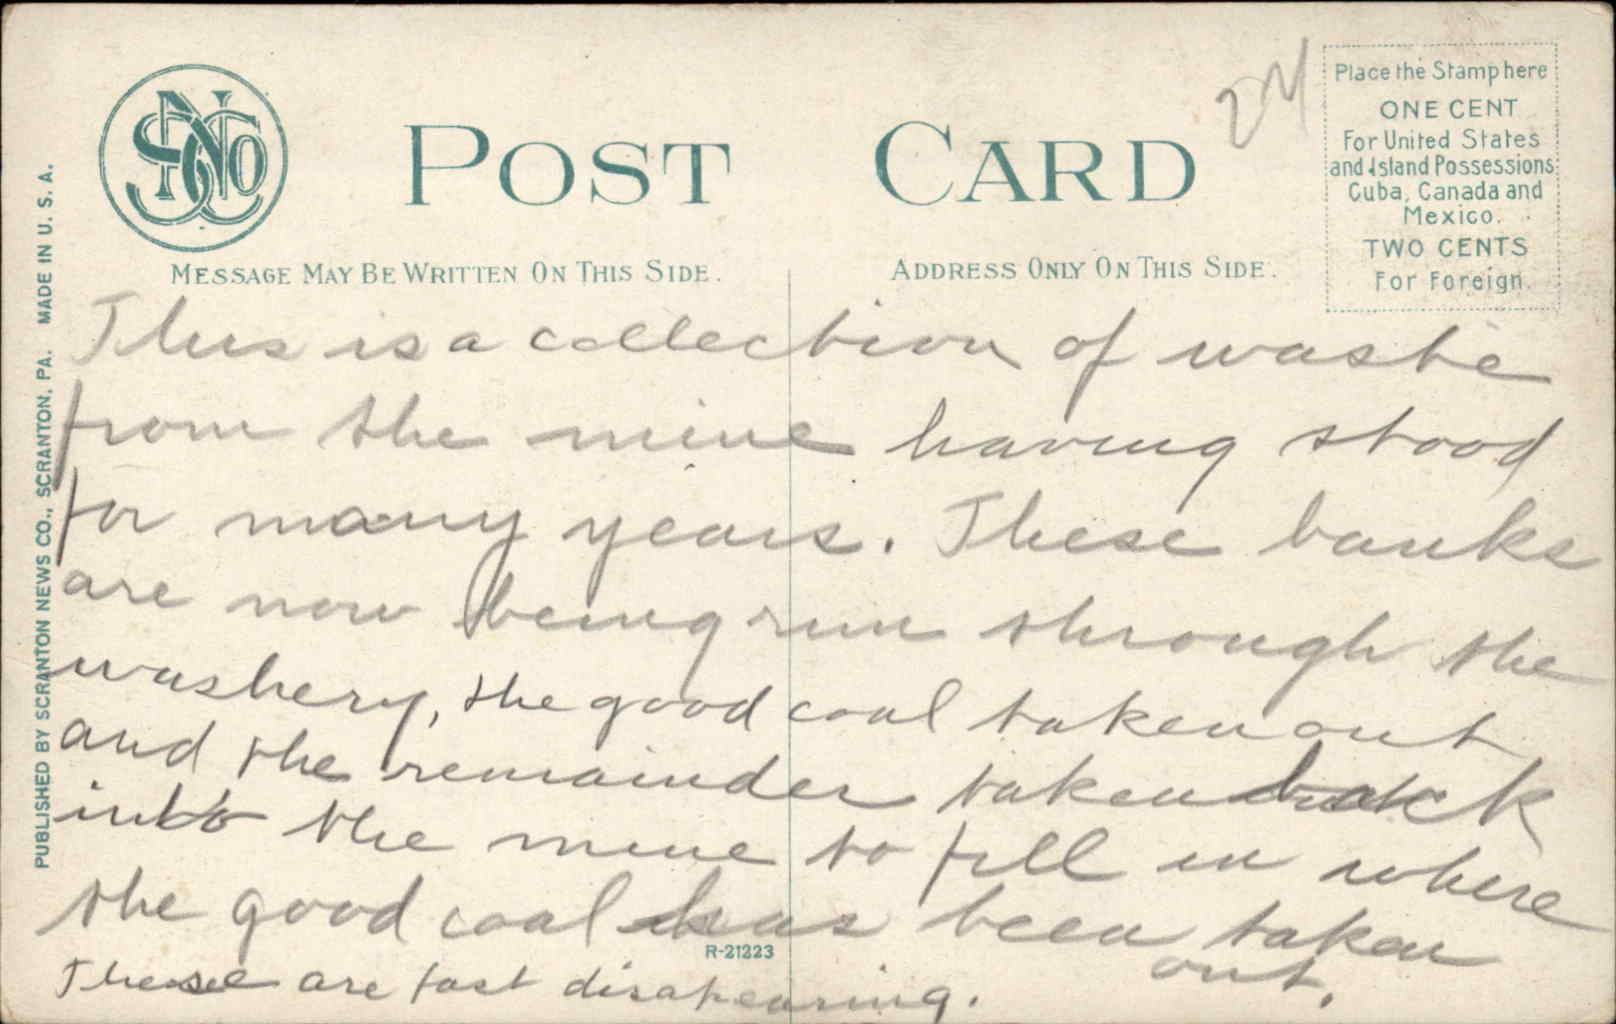 SNCO
POST CARD
24
Place the Stamp here
ONE CENT
For United States
and Island Possessions
Cuba, Canada and
Mexico.
TWO CENTS
For Foreign.
MESSAGE MAY BE WRITTEN ON THIS SIDE.
ADDRESS ONLY ON THIS SIDE.
PUBLISHED BY SCRANTON NEWS CO., SCRANTON, PA. MADE IN U. S. A.
This is a collection of waste
from the mine having stood
for many years. These banks
are now being run through the
washery, the good coal taken out
and the remainder taken back
into the mine to fill in where
the good coal has been taken
out.
These are fast disapearing.
R-21223